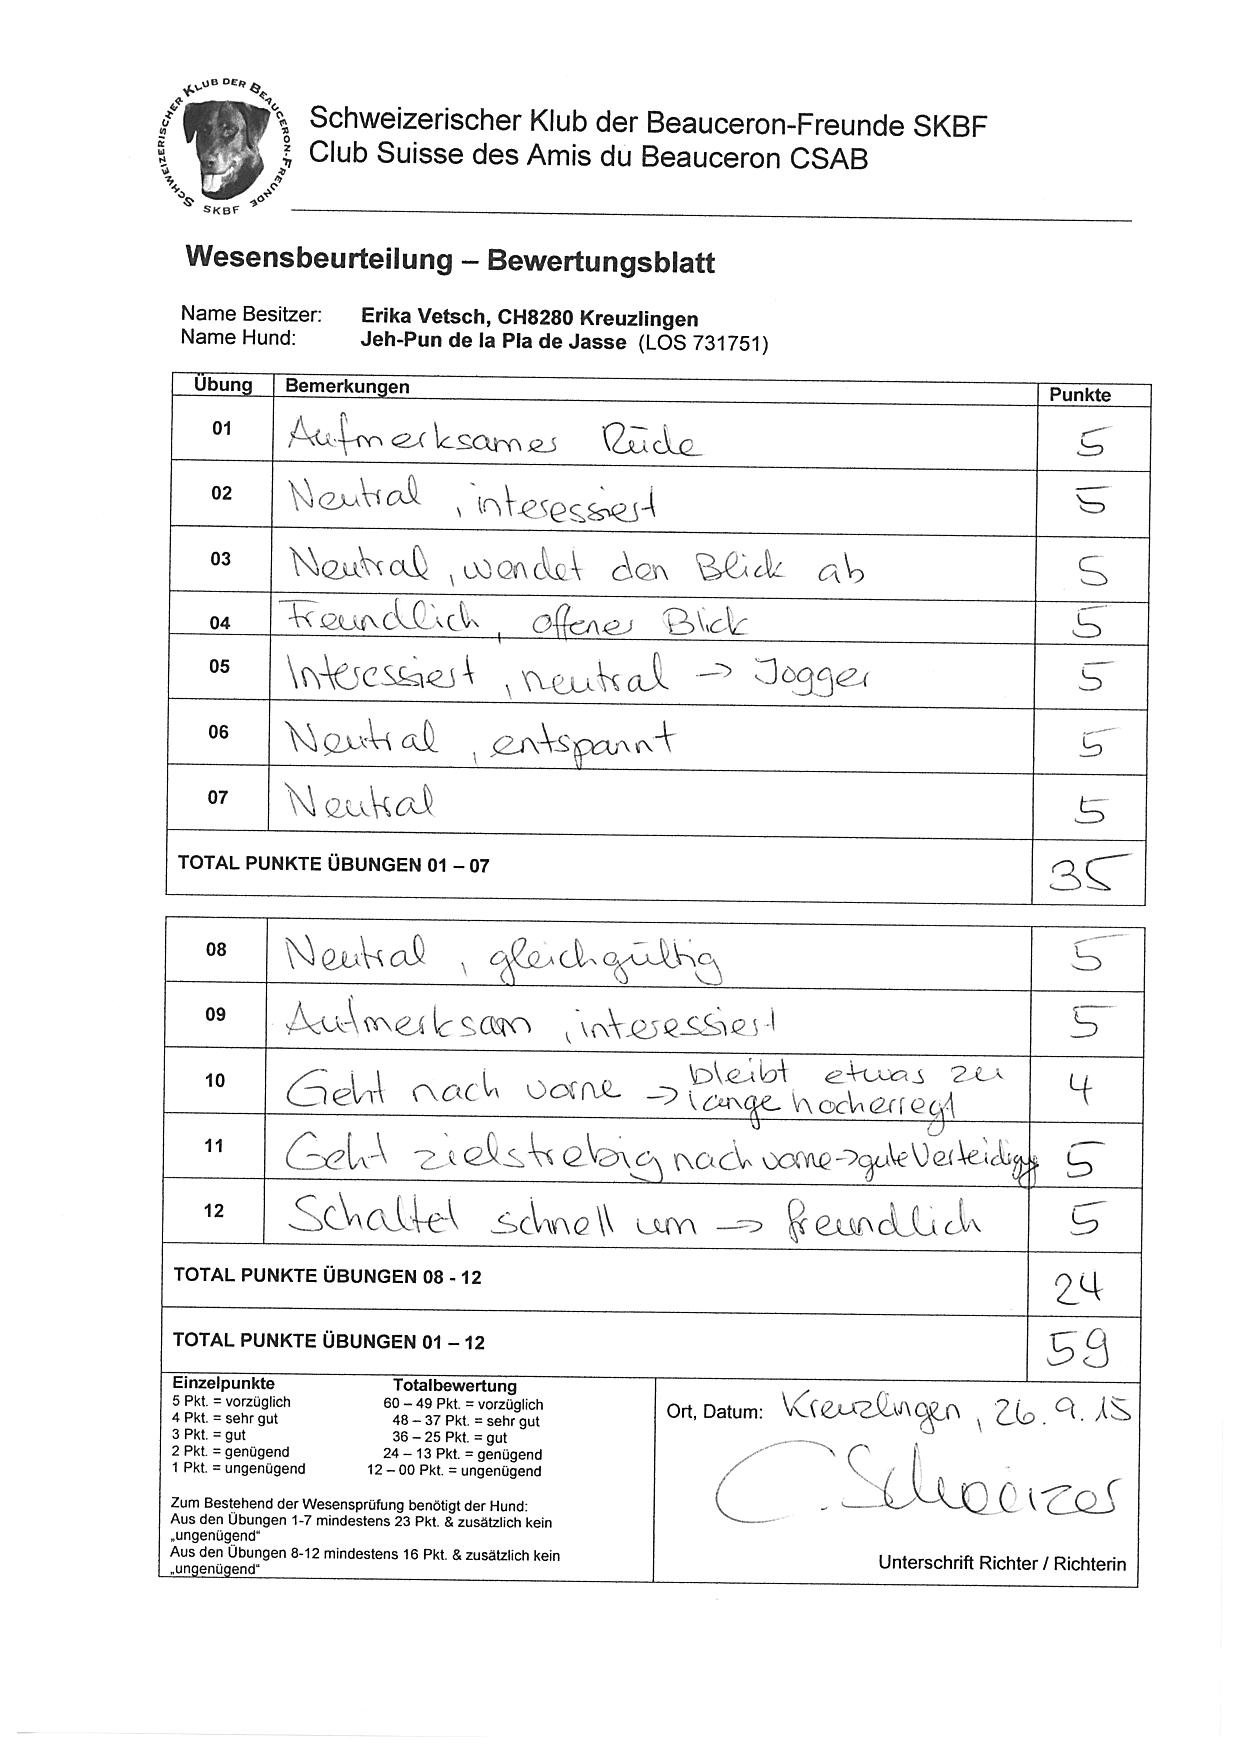 SCHWEIZERISCHER KLUB DER BEAUCERON-FREUNDE
SKBF
Schweizerischer Klub der Beauceron-Freunde SKBF
Club Suisse des Amis du Beauceron CSAB
Wesensbeurteilung – Bewertungsblatt
Name Besitzer: Erika Vetsch, CH8280 Kreuzlingen
Name Hund: Jeh-Pun de la Pla de Jasse (LOS 731751)
Übung Bemerkungen Punkte
01 Aufmerksamer Rüde 5
02 Neutral, interessiert 5
03 Neutral, wendet den Blick ab 5
04 Freundlich, offener Blick 5
05 Interessiert, neutral -> Jogger 5
06 Neutral, entspannt 5
07 Neutral 5
TOTAL PUNKTE ÜBUNGEN 01 – 07 35
08 Neutral, gleichgültig 5
09 Aufmerksam, interessiert 5
10 Geht nach vorne -> bleibt etwas zu
lange hocherregt 4
11 Geht zielstrebig nach vorne -> gute Verteidigg 5
12 Schaltet schnell um -> freundlich 5
TOTAL PUNKTE ÜBUNGEN 08 - 12 24
TOTAL PUNKTE ÜBUNGEN 01 – 12 59
Einzelpunkte Totalbewertung
5 Pkt. = vorzüglich 60 – 49 Pkt. = vorzüglich
4 Pkt. = sehr gut 48 – 37 Pkt. = sehr gut
3 Pkt. = gut 36 – 25 Pkt. = gut
2 Pkt. = genügend 24 – 13 Pkt. = genügend
1 Pkt. = ungenügend 12 – 00 Pkt. = ungenügend
Zum Bestehend der Wesensprüfung benötigt der Hund:
Aus den Übungen 1-7 mindestens 23 Pkt. & zusätzlich kein
„ungenügend“
Aus den Übungen 8-12 mindestens 16 Pkt. & zusätzlich kein
„ungenügend“
Ort, Datum: Kreuzlingen, 26.9.15
C. Schweizer
Unterschrift Richter / Richterin